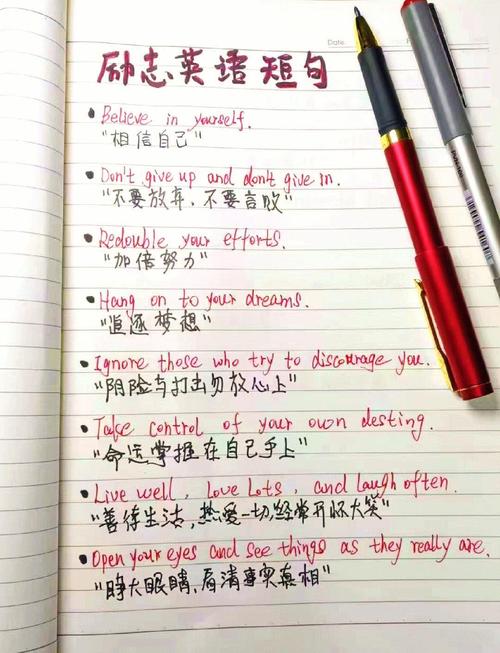 Date.
励志英语短句
• Believe in yourself.
"相信自己"
• Don't give up and don't give in.
"不要放弃，不要言败"
• Redouble your efforts.
"加倍努力"
• Hang on to your dreams.
"追逐梦想"
• Ignore those who try to discourage you.
"阴险与打击勿放心上"
• Take control of your own desting.
"命运掌握在自己手上"
• Live well, Love Lots, and laugh often.
"善待生活，热爱一切，经常开怀大笑"
• Open your eyes and see things as they really are.
"睁大眼睛，看清事实真相"